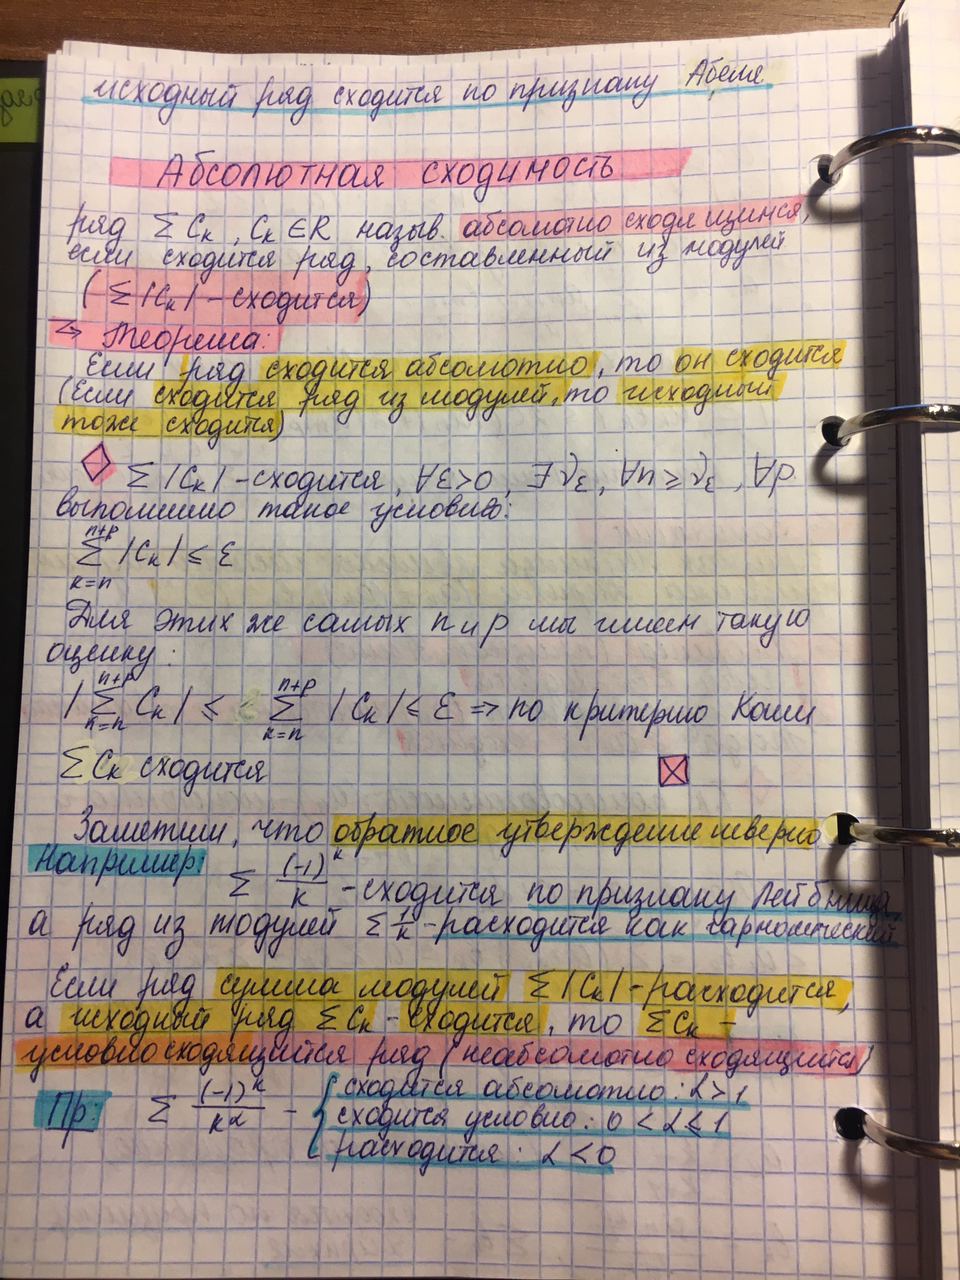 исходный ряд сходится по признаку Абеля.
Абсолютная сходимость
ряд Σ Cₖ, Cₖ ∈ R назыв. абсолютно сходящимся,
если сходится ряд, составленный из модулей
(Σ|Cₖ| - сходится)
→ Теорема:
Если ряд сходится абсолютно, то он сходится
(Если сходится ряд из модулей, то исходный
тоже сходится)
Σ |Cₖ| - сходится, ∀ε>0, ∃γε, ∀n≥γε, ∀p
выполнимо такое условие:
n+p
Σ |Cₖ| ≤ ε
k=n
Для этих же самых n и p мы имеем такую
оценку:
n+p n+p
| Σ Cₖ | ≤ Σ |Cₖ| ≤ ε ⇒ по критерию Коши
n=n k=n
ΣCₖ сходится
Заметим, что обратное утверждение неверно
Например: Σ (-1)ᵏ/k - сходится по признаку Лейбница,
а ряд из модулей Σ 1/k - расходится как гармонический
Если ряд сумма модулей Σ|Cₖ| - расходится,
а исходный ряд ΣCₖ - сходится, то ΣCₖ -
условно сходящийся ряд (неабсолютно сходящийся)
Пр: Σ (-1)ᵏ/k^α - { сходится абсолютно: α>1
сходится условно: 0<α≤1
расходится: α<0